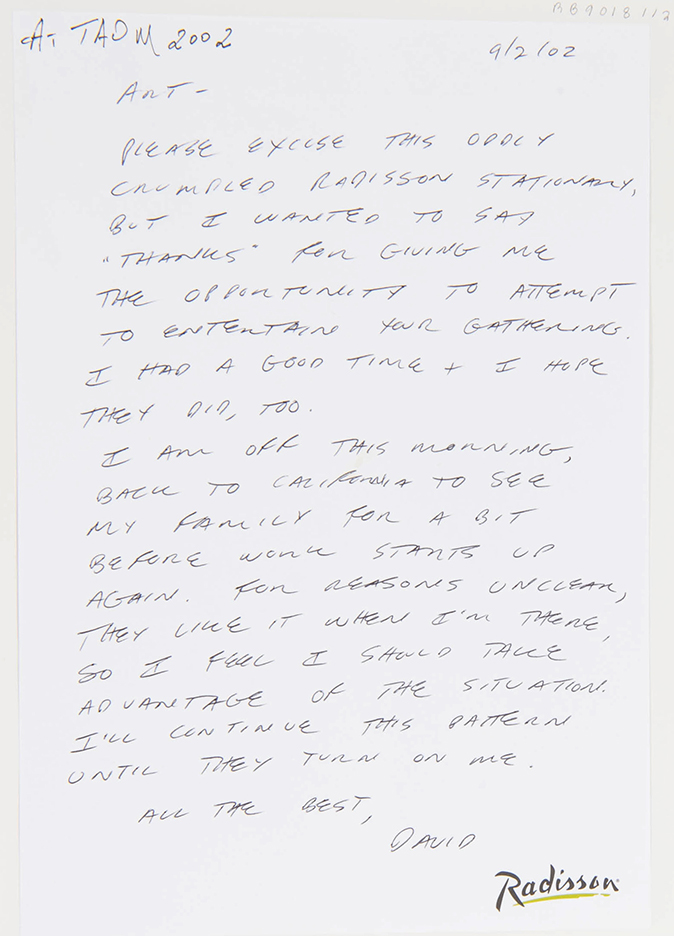 BB9018 1/2
At TADM 2002
9/2/02
ART -
PLEASE EXCUSE THIS ODDLY
CRUMPLED RADISSON STATIONARY,
BUT I WANTED TO SAY
"THANKS" FOR GIVING ME
THE OPPORTUNITY TO ATTEMPT
TO ENTERTAIN YOUR GATHERING.
I HAD A GOOD TIME + I HOPE
THEY DID, TOO.
I AM OFF THIS MORNING,
BACK TO CALIFORNIA TO SEE
MY FAMILY FOR A BIT
BEFORE WORK STARTS UP
AGAIN. FOR REASONS UNCLEAR,
THEY LIKE IT WHEN I'M THERE,
SO I FEEL I SHOULD TAKE
ADVANTAGE OF THE SITUATION.
I'LL CONTINUE THIS PATTERN
UNTIL THEY TURN ON ME.
ALL THE BEST,
DAVID
Radisson